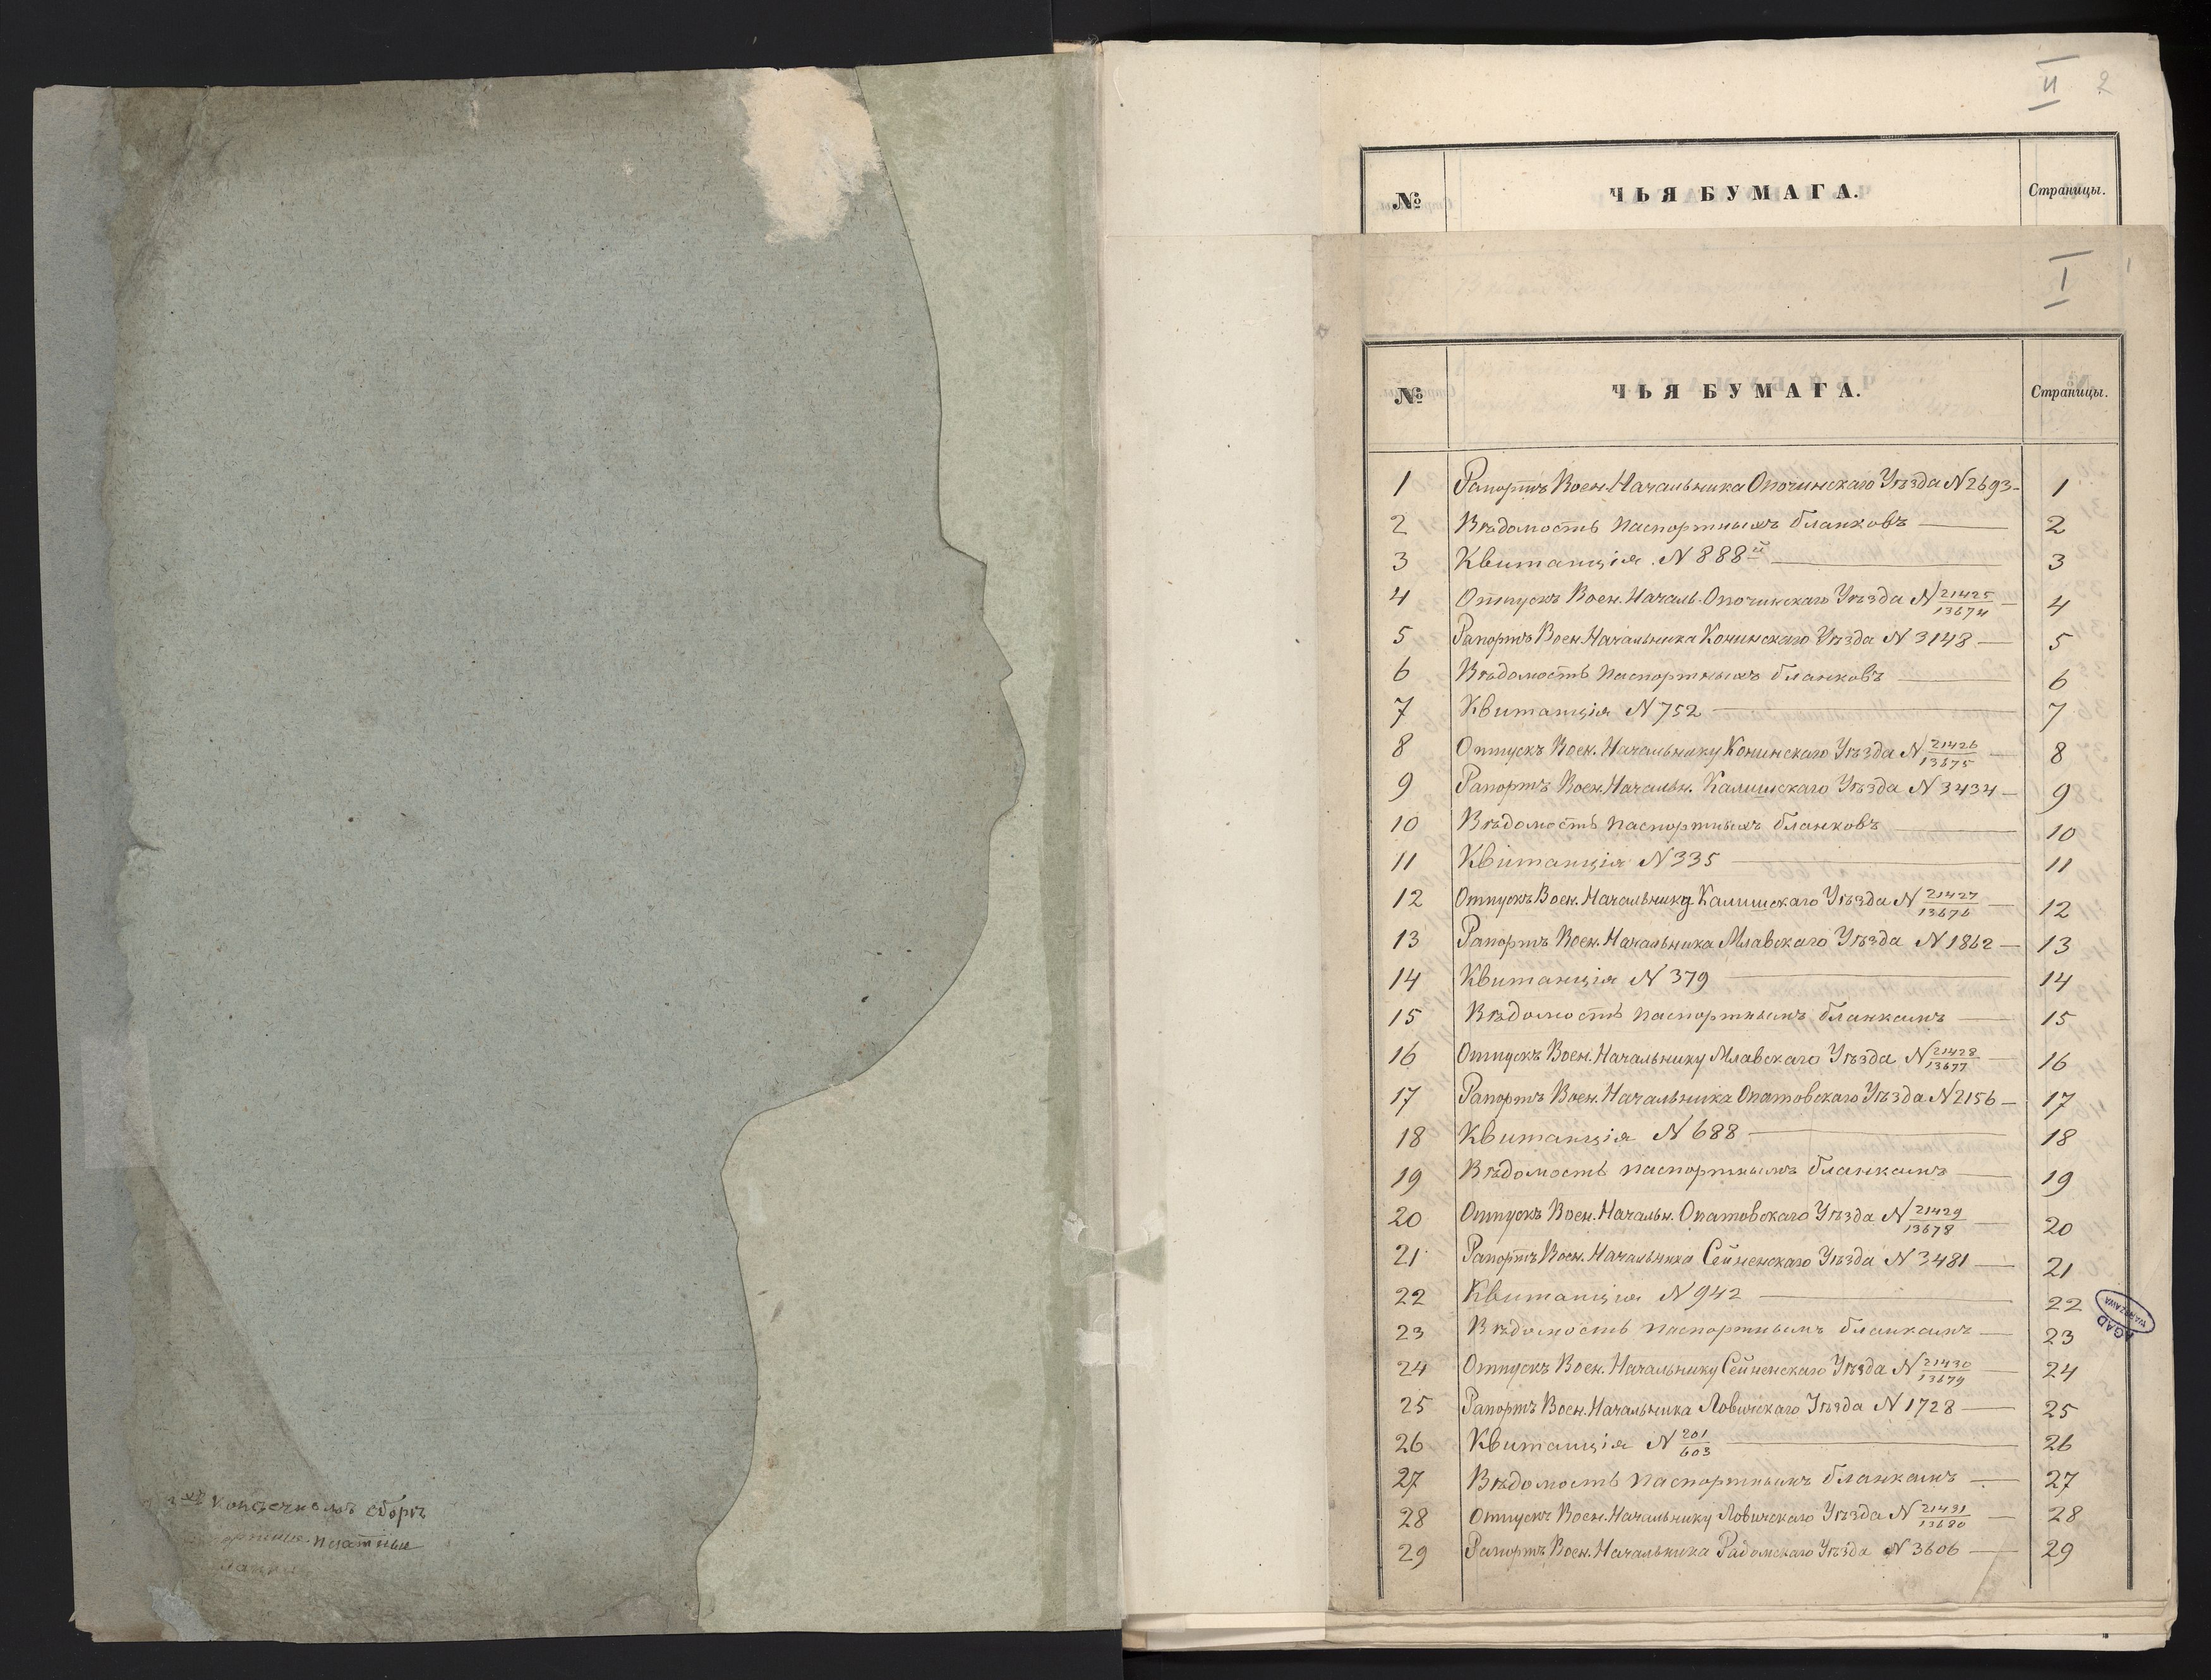 копѣечномъ сборѣ
печатные
II 2
№ ЧЬЯ БУМАГА. Страницы.
I 1
№ ЧЬЯ БУМАГА. Страницы.
1 Рапортъ Воен. Начальника Опочинскаго Уѣзда N 2693 — 1
2 Вѣдомость паспортныхъ бланковъ — 2
3 Квитанція N 888й — 3
4 Отпускъ Воен. Началь. Опочинскаго Уѣзда N 21425/13674 — 4
5 Рапортъ Воен. Начальника Конинскаго Уѣзда N 3148 — 5
6 Вѣдомость паспортныхъ бланковъ — 6
7 Квитанція N 752 — 7
8 Отпускъ Воен. Начальнику Конинскаго Уѣзда N 21426/13675 — 8
9 Рапортъ Воен. Начальн. Калишскаго Уѣзда N 3434 — 9
10 Вѣдомость паспортныхъ бланковъ — 10
11 Квітанція N 335 — 11
12 Отпускъ Воен. Начальнику Калишскаго Уѣзда N 21427/13676 — 12
13 Рапортъ Воен. Начальника Млавскаго Уѣзда N 1862 — 13
14 Квитанція N 379 — 14
15 Вѣдомость паспортнымъ бланкамъ — 15
16 Отпускъ Воен. Начальнику Млавскаго Уѣзда N 21428/13677 — 16
17 Рапортъ Воен. Начальника Опатовскаго Уѣзда N 2156 — 17
18 Квитанція N 688 — 18
19 Вѣдомость паспортнымъ бланкамъ — 19
20 Отпускъ Воен. Начальн. Опатовскаго Уѣзда N 21429/13678 — 20
21 Рапортъ Воен. Начальника Сейненскаго Уѣзда N 3481 — 21
22 Квитанція N 942 — 22
23 Вѣдомость паспортнымъ бланкамъ — 23
24 Отпускъ Воен. Начальнику Сейненскаго Уѣзда N 21430/13679 — 24
25 Рапортъ Воен. Начальника Ловичскаго Уѣзда N 1728 — 25
26 Квитанція N 201/603 — 26
27 Вѣдомость паспортнымъ бланкамъ — 27
28 Отпускъ Воен. Начальнику Ловичскаго Уѣзда N 21431/13680 — 28
29 Рапортъ Воен. Начальника Радомскаго Уѣзда N 3606 — 29
AGAD WARSZAWA